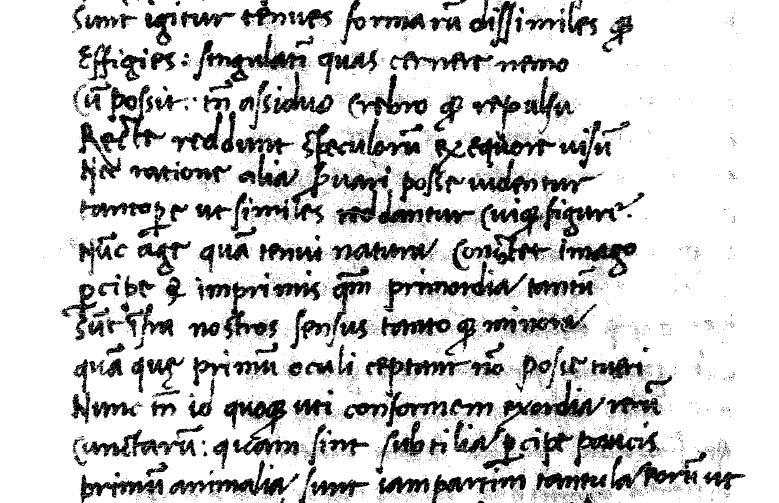 Sunt igitur tenues formarū dissimiles qꝫ
Effigies: singulatī quas cernere nemo
Cū possit: tn̄ assiduo crebro qꝫ repulsu
Reiecte reddunt speculorū ex equore uisū
Nec ratione alia s̄uari posse uidentur
tantoꝑe ut similes reddantur cuiqꝫ figure.
Nūc age quā tenui natura constet imago
ꝑcipe & imprimis qm̄ primordia tantū
Sūt īfra nostros sensus tanto qꝫ minora
quā quę primū oculi ceptant nō posse tueri
Nunc tn̄ io quoqꝫ uti conformem exordia rerū
Cunctarū: quam sint subtilia ꝑcipe paucis
primū animalia sunt iam partim tantula horū ut